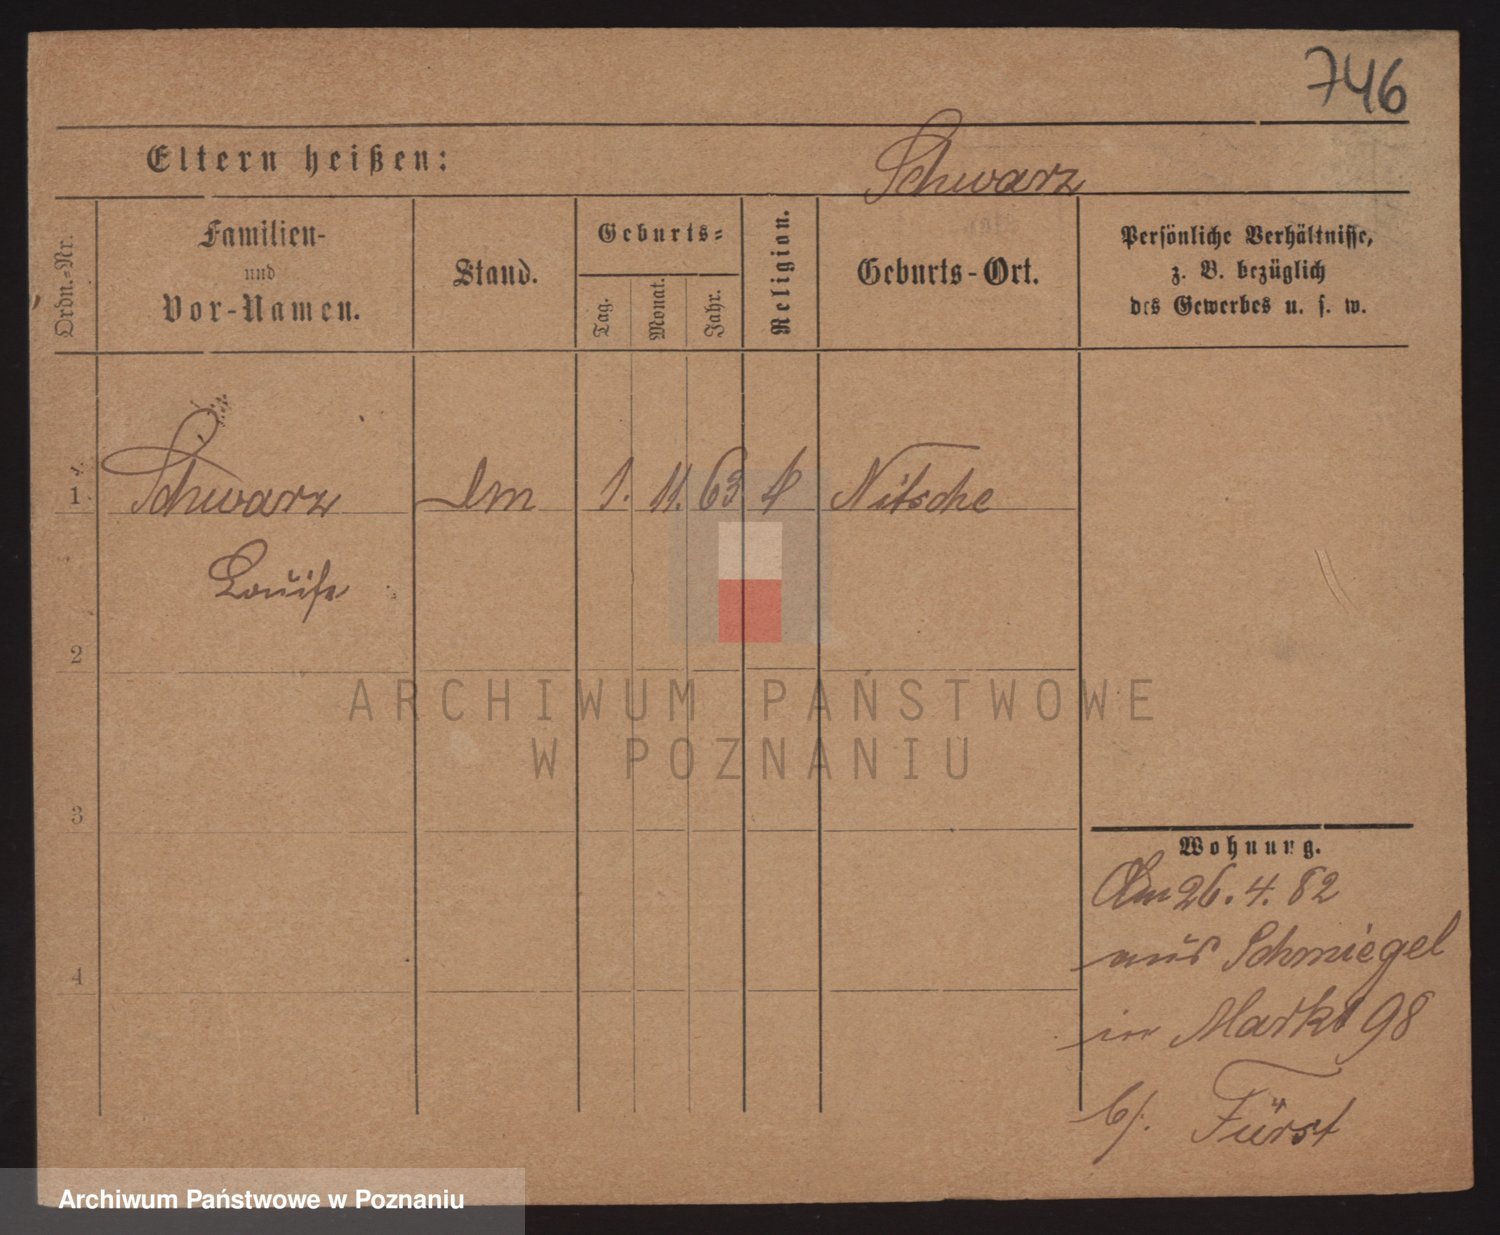 746
Eltern heißen:
Schwarz
Ordn.-Nr.
Familien-
und
Vor-Namen.
Stand.
Geburts-
Tag.
Monat.
Jahr.
Religion.
Geburts-Ort.
Persönliche Verhältnisse,
z. B. bezüglich
des Gewerbes u. s. w.
1 Schwarz 1. 11. 63 Nitsche
Louise
2
ARCHIWUM PAŃSTWOWE
W POZNANIU
3
Wohnung.
Am 26. 4. 82
aus Schmiegel
in Markt 98
b/. Fürst
4
Archiwum Państwowe w Poznaniu